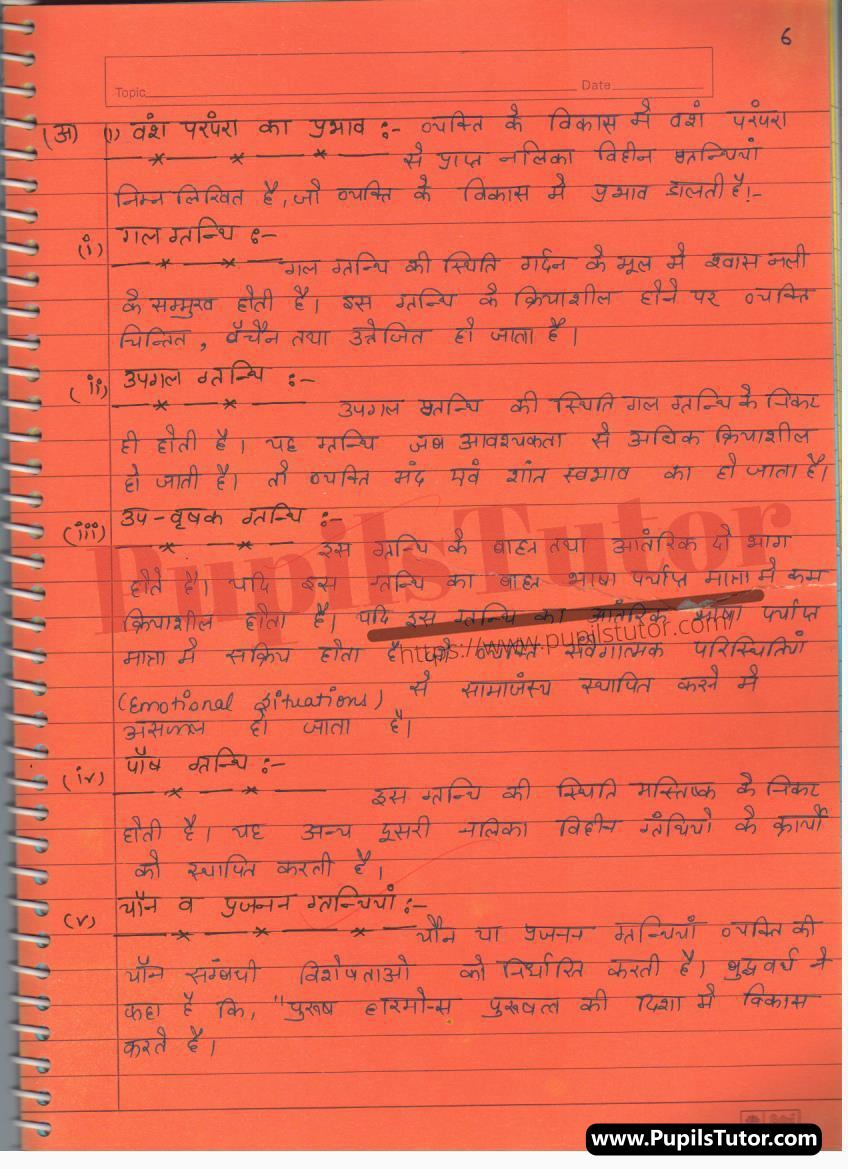 6
Topic Date
(अ) (1) वंश परंपरा का प्रभाव :- व्यक्ति के विकास मे वशं परंपरा
से प्राप्त नलिका विहीन ग्रन्थियां
निम्न लिखित है, जो व्यक्ति के विकास मे प्रभाव डालती है।-
(i) गल ग्रन्थि :-
गल ग्रन्थि की स्थिति गर्दन के मूल मे श्वास नली
के सम्मुख होती है। इस ग्रन्थि के क्रियाशील होने पर व्यक्ति
चिन्तित, बैचेन तथा उत्तेजित हो जाता है।
(ii) उपगल ग्रन्थि :-
उपगल ग्रन्थि की स्थिति गल ग्रन्थि के निकट
ही होती है। यह ग्रन्थि जब आवश्यकता से अधिक क्रियाशील
हो जाती है। तो व्यक्ति मंद एवं शांत स्वभाव का हो जाता है।
(iii) उप-वृषक ग्रन्थि :-
इस ग्रन्थि के बाह्य तथा आंतरिक दो भाग
होते है। यदि इस ग्रन्थि का बाह्य भाषा पर्याप्त मात्रा मे कम
क्रियाशील होता है। यदि इस ग्रन्थि का आंतरिक पर्याप्त
मात्रा मे सक्रिय होता है। तो व्यक्ति संवेगात्मक परिस्थितियां
(Emotional situations) से सामाजंस्य स्थापित करने मे
असफल हो जाता है।
(iv) पौष ग्रन्थि :-
इस ग्रन्थि की स्थिति मस्तिष्क के निकट
होती है। यह अन्य दूसरी नलिका विहीन ग्रंथियो के कार्यो
को स्थापित करती है।
(v) यौन व प्रजनन ग्रन्थियां :-
यौन या प्रजनन ग्रन्थियां व्यक्ति की
यौन संम्बधी विशेषताओ को निर्धारित करती है। वुडवर्थ ने
कहा है कि, "पुरूष हारमोन्स पुरूषत्व की दिशा मे विकास
करते है।
PupilsTutor
https://www.pupilstutor.com
www.PupilsTutor.com